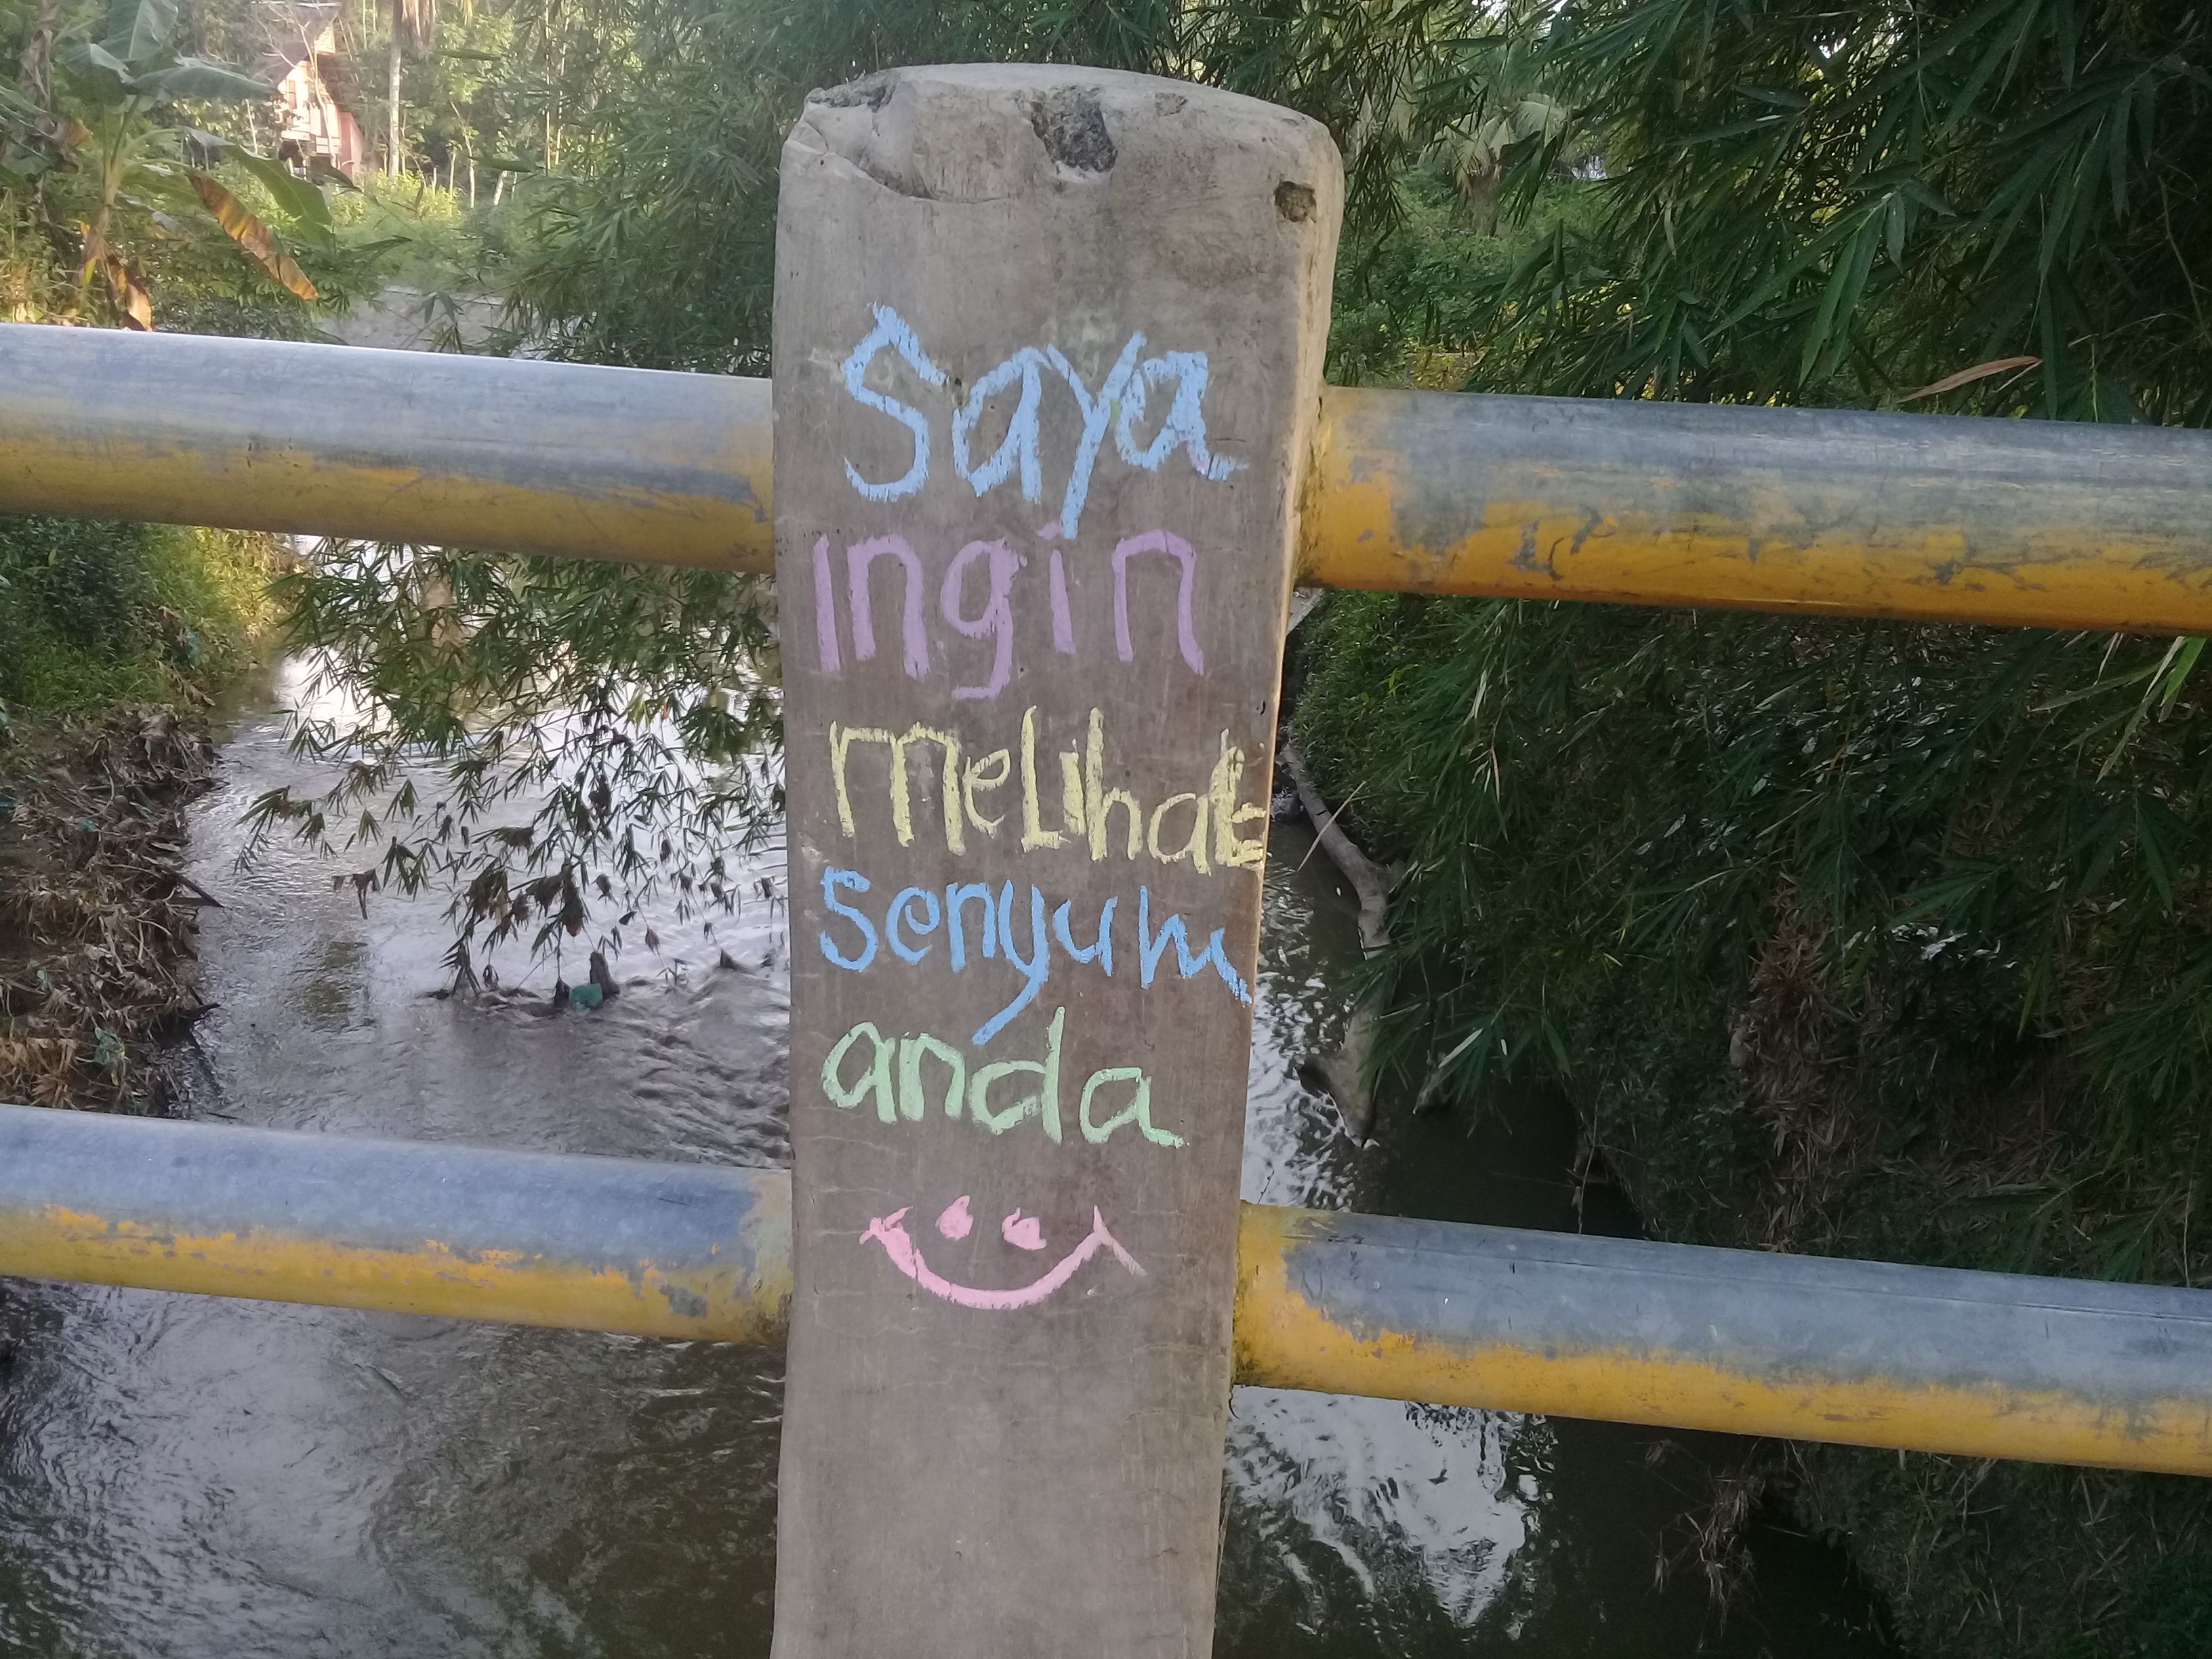 Saya
ingin
melihat
senyum
anda